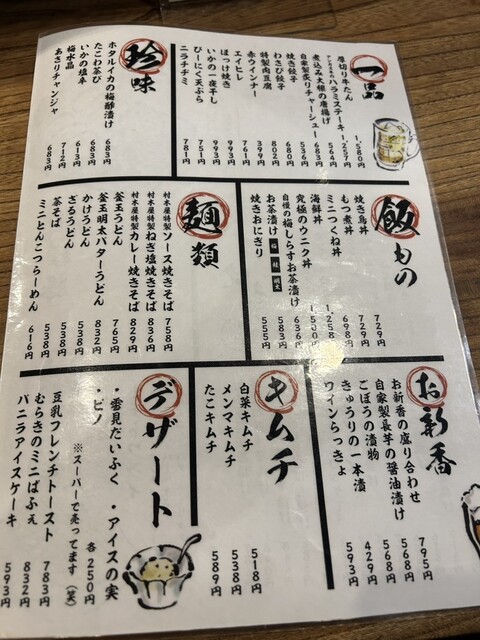 一品
厚切り牛たん
アンガス牛のハラミステーキ
煮込み大根の唐揚げ
自家製炙りチャーシュー
焼き餃子
わさび餃子
特製肉豆腐
赤ウインナー
エイヒレ
ほっけ焼き
いかの一夜干し
ぴーにく天ぷら
ニラチヂミ
1,580円
1,257円
564円
683円
536円
680円
802円
399円
761円
993円
751円
781円
珍味
ホタルイカの梅酢漬け 683円
たこわさび 683円
いかの塩辛 613円
梅水晶 712円
あさりチャンジャ 683円
飯もの
焼き鳥丼 729円
もつ煮丼 729円
ミニつくね丼 698円
海鮮丼 1,258円
究極のウニク丼 1,500円
自慢の梅しらすお茶漬け 636円
お茶漬け 梅 鮭 明太 583円
焼きおにぎり 555円
麺類
村木屋特製ソース焼きそば 758円
村木屋特製ねぎ塩焼きそば 836円
村木屋特製カレー焼きそば 829円
釜玉うどん 765円
釜玉明太バターうどん 832円
かけうどん 538円
ざるうどん 538円
茶そば 538円
ミニとんこつらーめん 616円
お新香
お新香の盛り合わせ 795円
自家製長芋の醤油漬け 568円
ごぼうの漬物 568円
きゅうりの一本漬 429円
ワインらっきょ 593円
キムチ
白菜キムチ 518円
メンマキムチ 538円
たこキムチ 589円
デザート
・雪見だいふく ・アイスの実
・ピノ 各250円
※スーパーで売ってます(笑)
豆乳フレンチトースト 783円
むらきのミニぱふぇ 832円
バニラアイスケーキ 593円